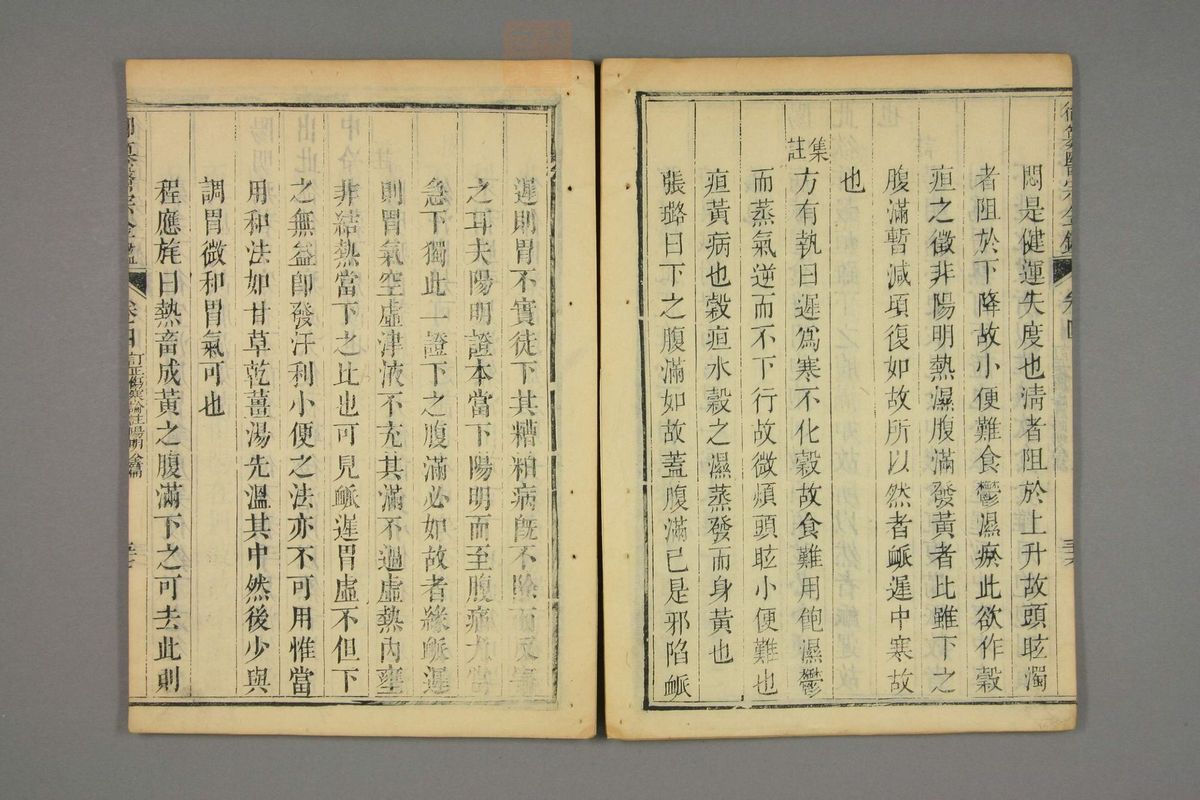 悶是健運失度也清者阻於上升故頭眩濁
者阻於下降故小便難食鬱濕瘀此欲作穀
疸之徵非陽明熱濕腹滿發黃者比雖下之
腹滿暫減頃復如故所以然者脈遲中寒故
也
集註方有執曰遲爲寒不化穀故食難用飽濕鬱
而蒸氣逆而不下行故微煩頭眩小便難也
疸黃病也穀疸水穀之濕蒸發而身黃也
張璐曰下之腹滿如故蓋腹滿已是邪陷脈
遲則胃不實徒下其糟粕病旣不除而反害
之耳夫陽明證本當下陽明而至腹滿尤當
急下獨此一證下之腹滿必如故者緣脈遲
則胃氣空虛津液不充其滿不過虛熱內壅
非結熱當下之比也可見脈遲胃虛不但下
之無益卽發汗利小便之法亦不可用惟當
用和法如甘草乾薑湯先溫其中然後少與
調胃微和胃氣可也
程應旄曰熱畜成黃之腹滿下之可去此則
御纂醫宗金鑑 卷四 訂正傷寒論註陽明全篇